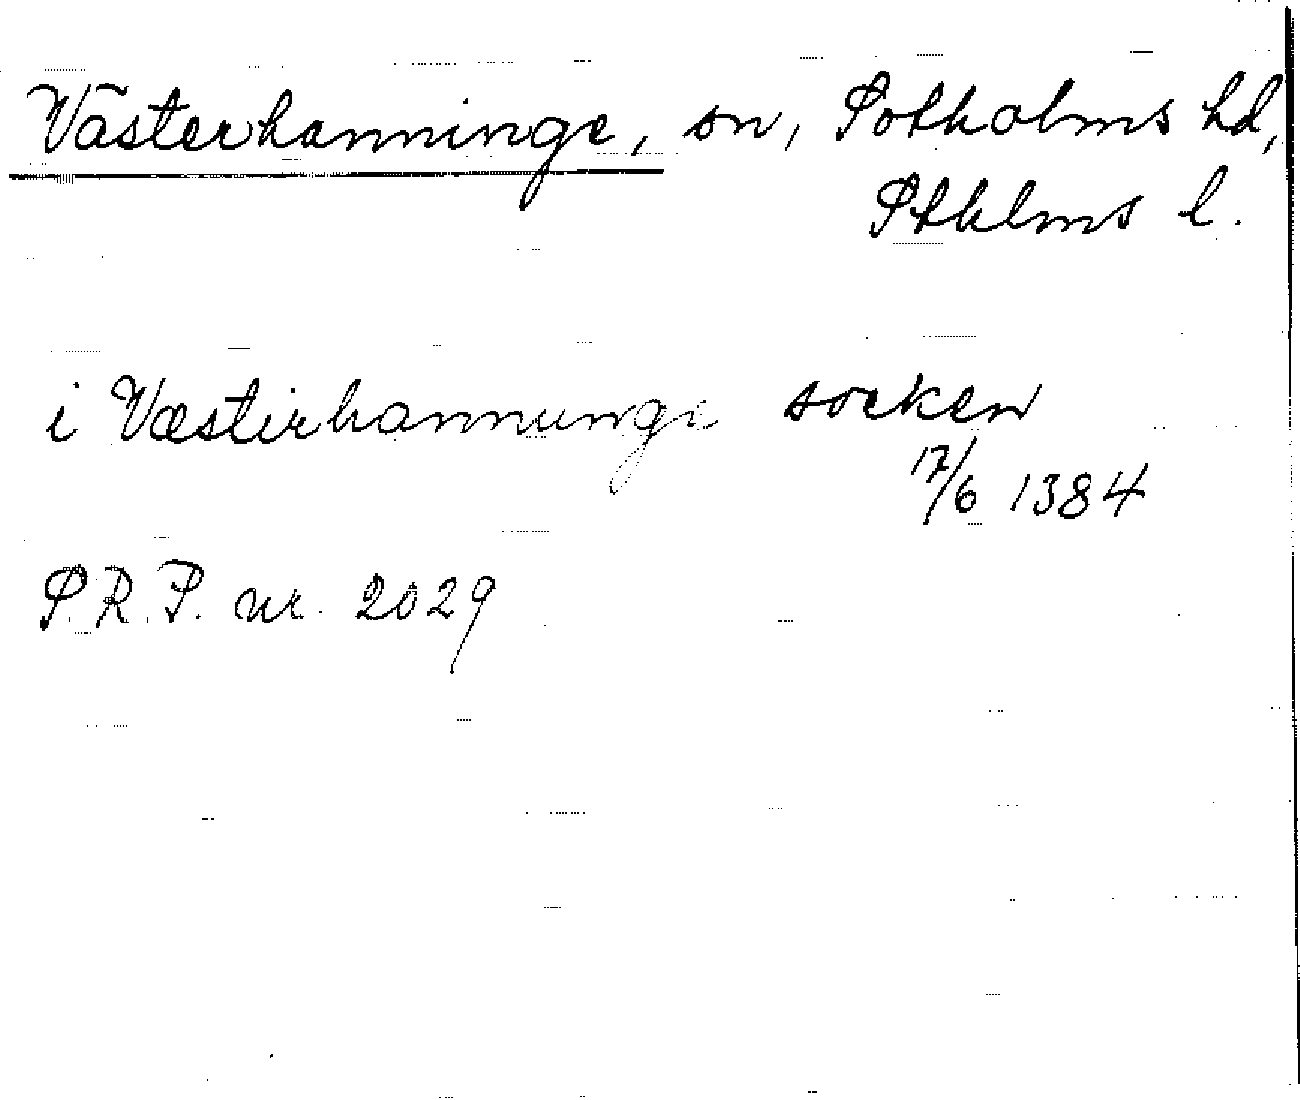 Västerhanninge, sn, Sotholms hd,
Sthlms l.
i Væstirhannunge socken
17/6 1384
S.R.P. nr. 2029